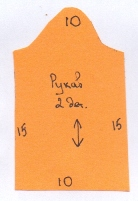 10
Рукав
2 дет.
15 15
10